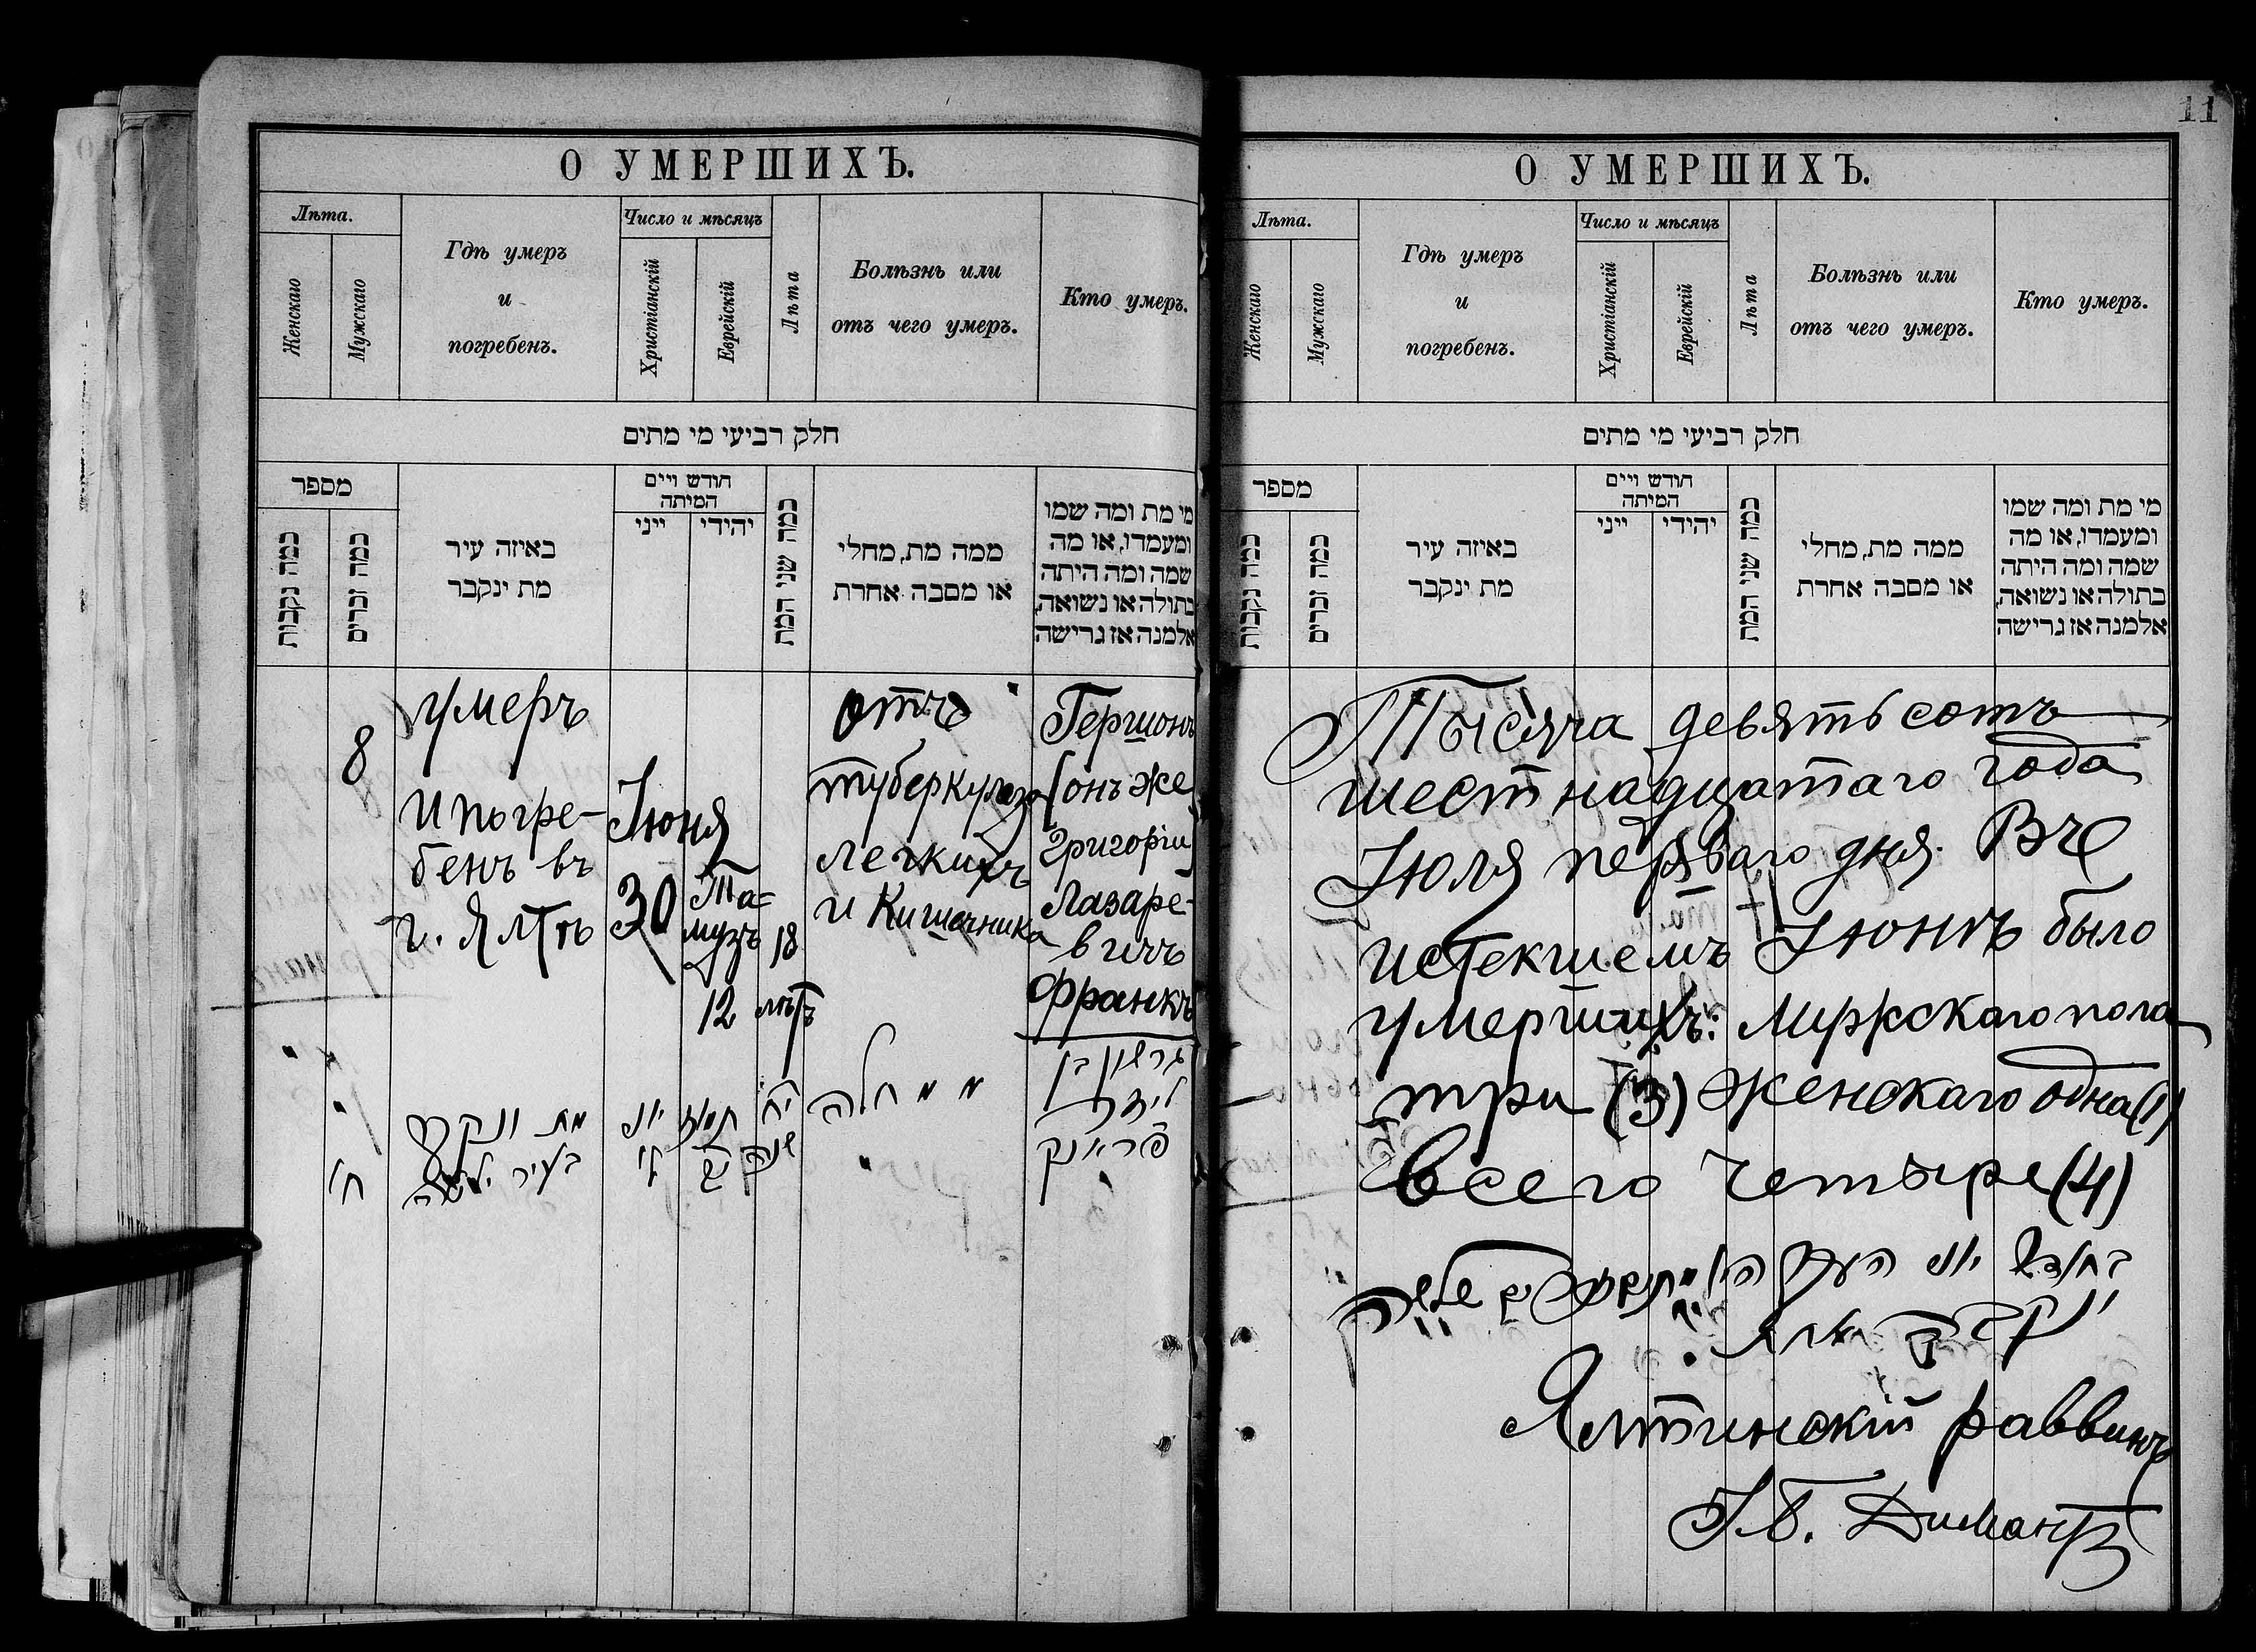 11
О УМЕРШИХЪ.
Лѣта.
Женскаго
Мужскаго
Гдѣ умеръ
и
погребенъ.
Число и мѣсяцъ
Христіанскій
Еврейскій
Лѣта
Болѣзнь или
отъ чего умеръ.
Кто умеръ.
חלק רביעי מי מתים
מספר
כמה נקבות
כמה זכרים
באיזה עיר
מת ינקבר
חודש ויים
המיתה
ייני
יהודי
כמה שני המת
ממה מת, מחלי
או מסבה אחרת
מי מת ומה שמו
ומעמדו, או מה
שמה ומה היתה
בתולה או נשואה,
אלמנה אז גרישה
8
умеръ
и погре-
бенъ въ
г. Ялтѣ
Іюня
30
Та-
музъ
12
18
лѣтъ
отъ
туберкулеза
легкихъ
и Кишечника
Гершонъ
(онъ же
Григорій)
Лазаре-
вичъ
Франкъ
ח'
מת ונקבר
בעיר יאלטה
יוני
ל'
תמוז
י"ב
י"ח
שנה
ממחלה
גרשון בן
ליזר
פראנק
О УМЕРШИХЪ.
Лѣта.
Женскаго
Мужскаго
Гдѣ умеръ
и
погребенъ.
Число и мѣсяцъ
Христіанскій
Еврейскій
Лѣта
Болѣзнь или
отъ чего умеръ.
Кто умеръ.
חלק רביעי מי מתים
מספר
כמה נקבות
כמה זכרים
באיזה עיר
מת ינקבר
חודש ויים
המיתה
ייני
יהודי
כמה שני המת
ממה מת, מחלי
או מסבה אחרת
מי מת ומה שמו
ומעמדו, או מה
שמה ומה היתה
בתולה או נשואה,
אלמנה אז גרישה
Тысяча девятьсотъ
шестнадцатаго года
Іюля перваго дня. Въ
истекшемъ Іюнѣ было
умершихъ: Мужскаго пола
три (3) Женскаго одна (1)
Всего четыре (4)
בחודש יוני
ונקבה אחת
Ялтинскій раввинъ
І. Б. Димантъ